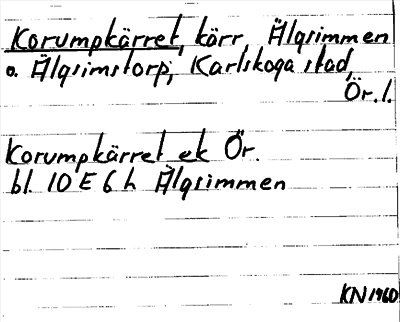 Korumpkärret, kärr, Älgsimmen
o. Älgsimstorp, Karlskoga stad,
Ör. l.
Korumpkärret ek Ör.
bl. 10 E 6 h Älgsimmen
KN 1960